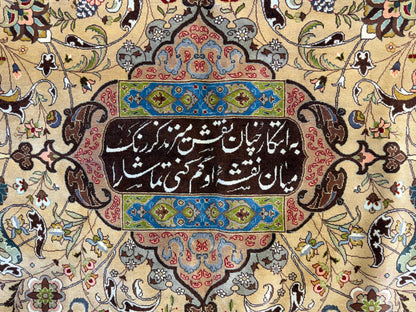 به ابتکار چنان نقش میزند کز رنگ
میان نقشه او گم کنی تماشا را